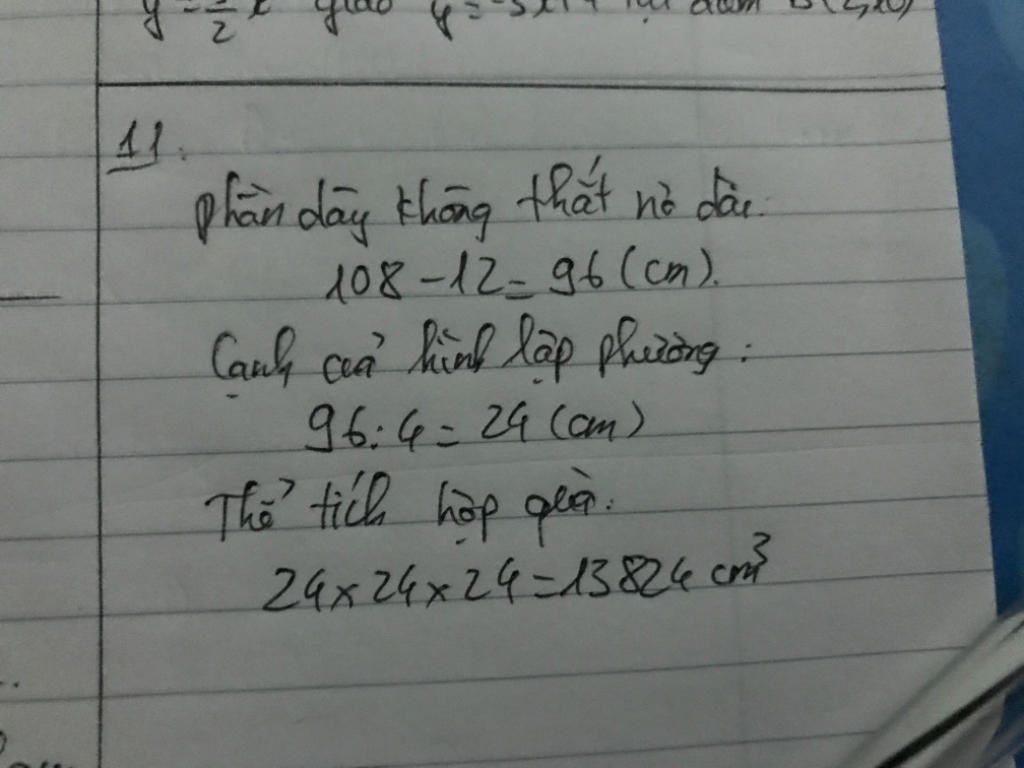 11.
Phần dây không thắt nơ dài:
108 - 12 = 96 (cm).
Cạnh của hình lập phương:
96 : 4 = 24 (cm)
Thể tích hộp quà:
24 x 24 x 24 = 13824 cm³